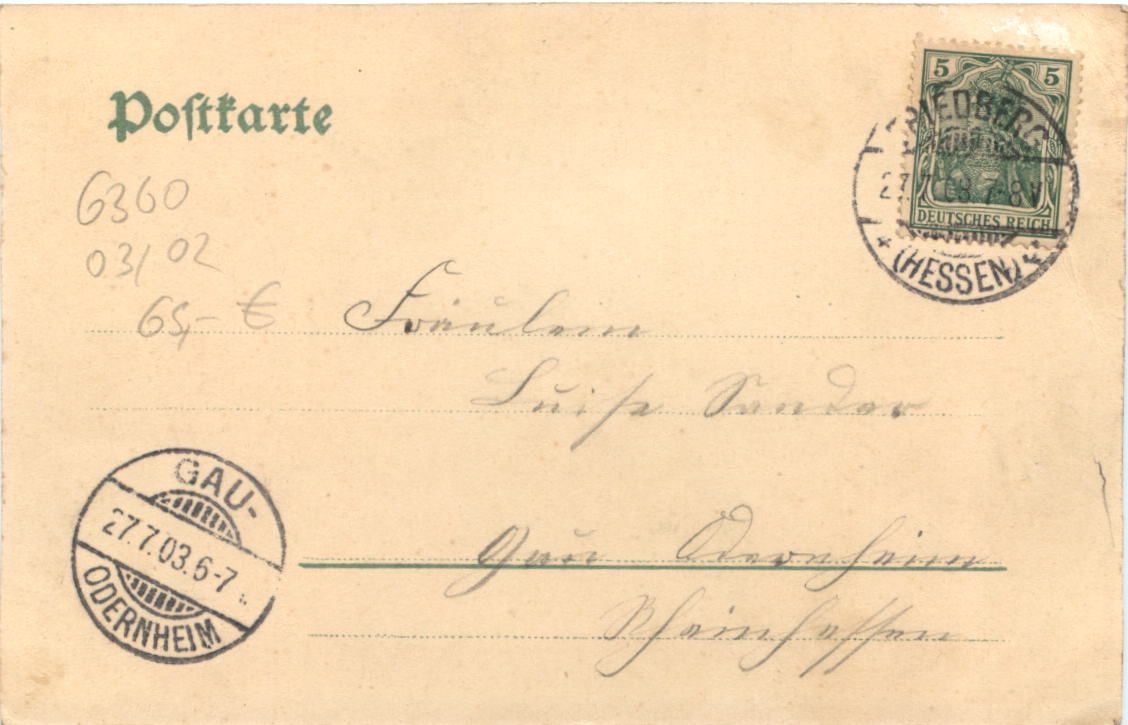 Postkarte
5 5
DEUTSCHES REICH
FRIEDBERG
27.7.03.7-8V
(HESSEN)
6360
03/02
65,- €
Fräulein
Luise Sander
Gau Odernheim
Rheinhessen
GAU-
27.7.03.6-7
ODERNHEIM